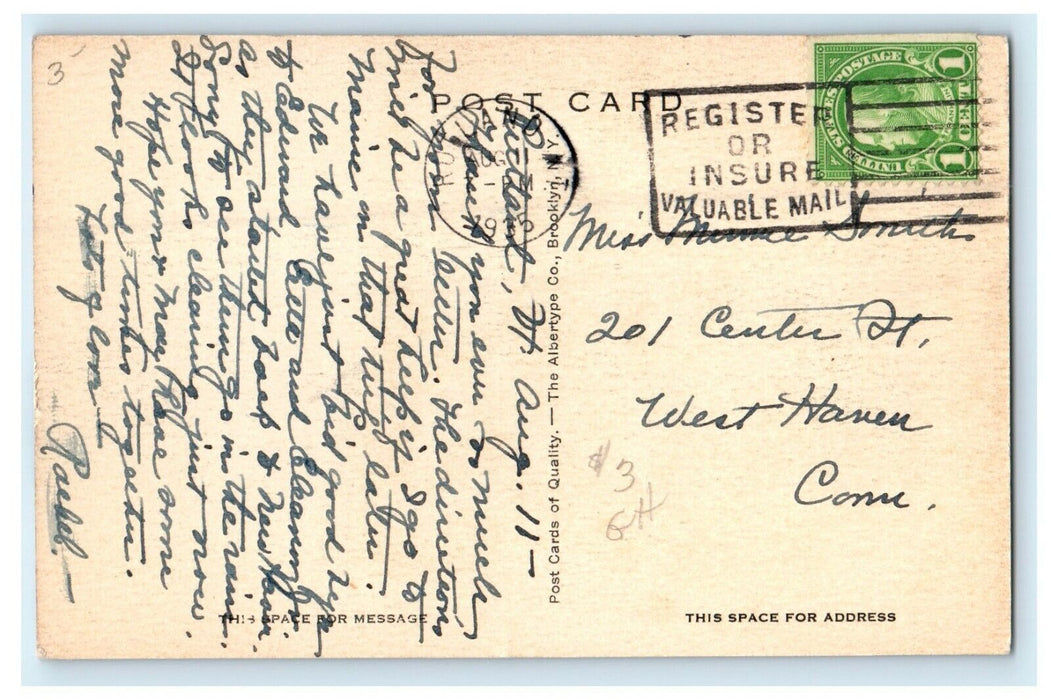 3
POST CARD
RUTLAND
AUG
PM
1935
REGISTER
OR
INSURE
VALUABLE MAIL
U.S. POSTAGE
1 1
Rutland, Vt. Aug. 11 —
Thank you ever so much
for your letter. The directions
will be a great help if I go to
Maine on that trip later.
We have just bid good bye
to Edmund, Belle and Eleanor
as they started back to New Haven.
Sorry to see things in the rain.
It looks clearing just now.
Hope you & Mary have some
more good times together.
Lots of love —
Rachel —
Miss Minnie Smith
201 Center St,
West Haven
Conn.
$3
GH
Post Cards of Quality. — The Albertype Co., Brooklyn, N.Y.
THIS SPACE FOR MESSAGE
THIS SPACE FOR ADDRESS